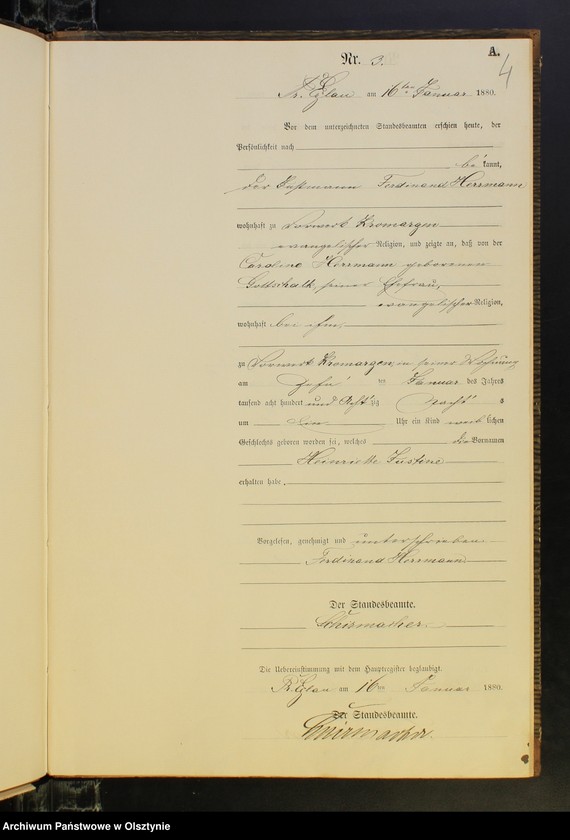 A.
Nr. 3.
4
Pr. Eylau am 16ten Januar 1880.
Vor dem unterzeichneten Standesbeamten erschien heute, der
Persönlichkeit nach
bekannt,
der Ferdinand Herrmann
wohnhaft zu Vorwerk Kromargen
evangelischer Religion, und zeigte an, daß von der
Caroline Herrmann geborenen
Gottschalk, seiner Ehefrau,
evangelischer Religion,
wohnhaft bei ihm,
zu Vorwerk Kromargen, in seiner Wohnung
am ten Januar des Jahres
tausend acht hundert und Achtzig Nachts
um Uhr ein Kind weiblichen
Geschlechts geboren worden sei, welches die Vornamen
Heinriette Justine
erhalten habe.
Vorgelesen, genehmigt und unterschrieben
Ferdinand Herrmann
Der Standesbeamte.
Schirmacher.
Die Uebereinstimmung mit dem Hauptregister beglaubigt.
Pr. Eylau am 16ten Januar 1880.
Der Standesbeamte.
Schirmacher.
Archiwum Państwowe w Olsztynie